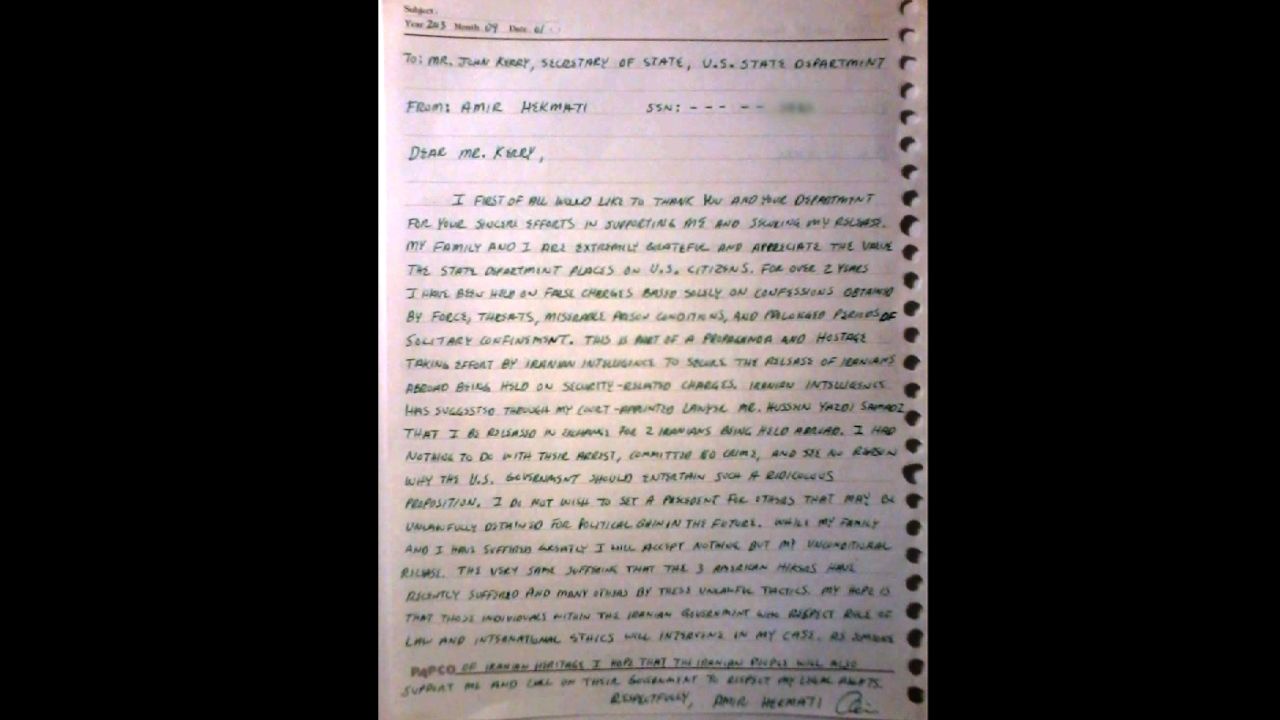 Subject.
Year 2013 Month 09 Date 01
TO: MR. JOHN KERRY, SECRETARY OF STATE, U.S. STATE DEPARTMENT
FROM: AMIR HEKMATI SSN: --- --
DEAR MR. KERRY,
I FIRST OF ALL WOULD LIKE TO THANK YOU AND YOUR DEPARTMENT
FOR YOUR SINCERE EFFORTS IN SUPPORTING ME AND SECURING MY RELEASE.
MY FAMILY AND I ARE EXTREMELY GRATEFUL AND APPRECIATE THE VALUE
THE STATE DEPARTMENT PLACES ON U.S. CITIZENS. FOR OVER 2 YEARS
I HAVE BEEN HELD ON FALSE CHARGES BASED SOLELY ON CONFESSIONS OBTAINED
BY FORCE, THREATS, MISERABLE PRISON CONDITIONS, AND PROLONGED PERIODS OF
SOLITARY CONFINEMENT. THIS IS PART OF A PROPAGANDA AND HOSTAGE
TAKING EFFORT BY IRANIAN INTELLIGENCE TO SECURE THE RELEASE OF IRANIANS
ABROAD BEING HELD ON SECURITY-RELATED CHARGES. IRANIAN INTELLIGENCE
HAS SUGGESTED THROUGH MY COURT-APPOINTED LAWYER MR. HUSSEIN YAZDI SAMADI
THAT I BE RELEASED IN EXCHANGE FOR 2 IRANIANS BEING HELD ABROAD. I HAD
NOTHING TO DO WITH THEIR ARREST, COMMITTED NO CRIME, AND SEE NO REASON
WHY THE U.S. GOVERNMENT SHOULD ENTERTAIN SUCH A RIDICULOUS
PROPOSITION. I DO NOT WISH TO SET A PRECEDENT FOR OTHERS THAT MAY BE
UNLAWFULLY DETAINED FOR POLITICAL GAIN IN THE FUTURE. WHILE MY FAMILY
AND I HAVE SUFFERED GREATLY I WILL ACCEPT NOTHING BUT MY UNCONDITIONAL
RELEASE. THE VERY SAME SUFFERING THAT THE 3 AMERICAN HIKERS HAVE
RECENTLY SUFFERED AND MANY OTHERS BY THESE UNLAWFUL TACTICS. MY HOPE IS
THAT THOSE INDIVIDUALS WITHIN THE IRANIAN GOVERNMENT WHO RESPECT RULE OF
LAW AND INTERNATIONAL ETHICS WILL INTERVENE IN MY CASE. AS SOMEONE
PAPCO OF IRANIAN HERITAGE I HOPE THAT THE IRANIAN PEOPLE WILL ALSO
SUPPORT ME AND CALL ON THEIR GOVERNMENT TO RESPECT MY LEGAL RIGHTS.
RESPECTFULLY, AMIR HEKMATI